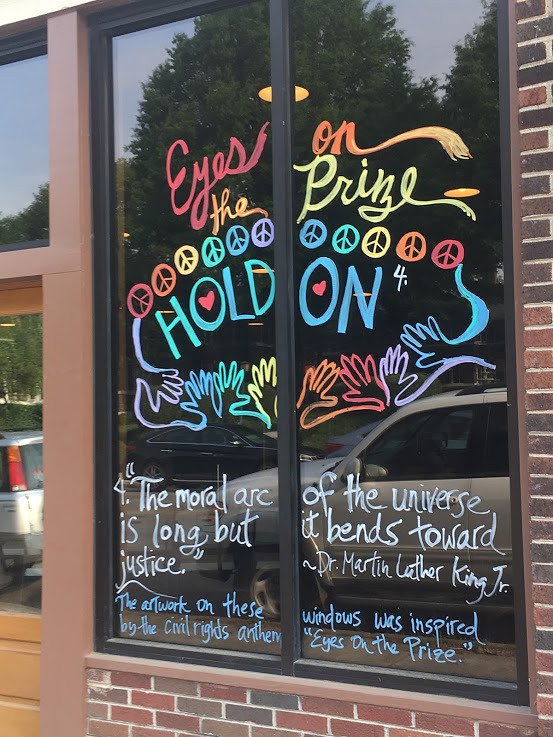 Eyes on
the Prize
HOLD ON 4.
4. "The moral arc of the universe
is long, but it bends toward
justice." ~Dr. Martin Luther King Jr.
The artwork on these windows was inspired
by the Civil rights anthem "Eyes On the Prize."